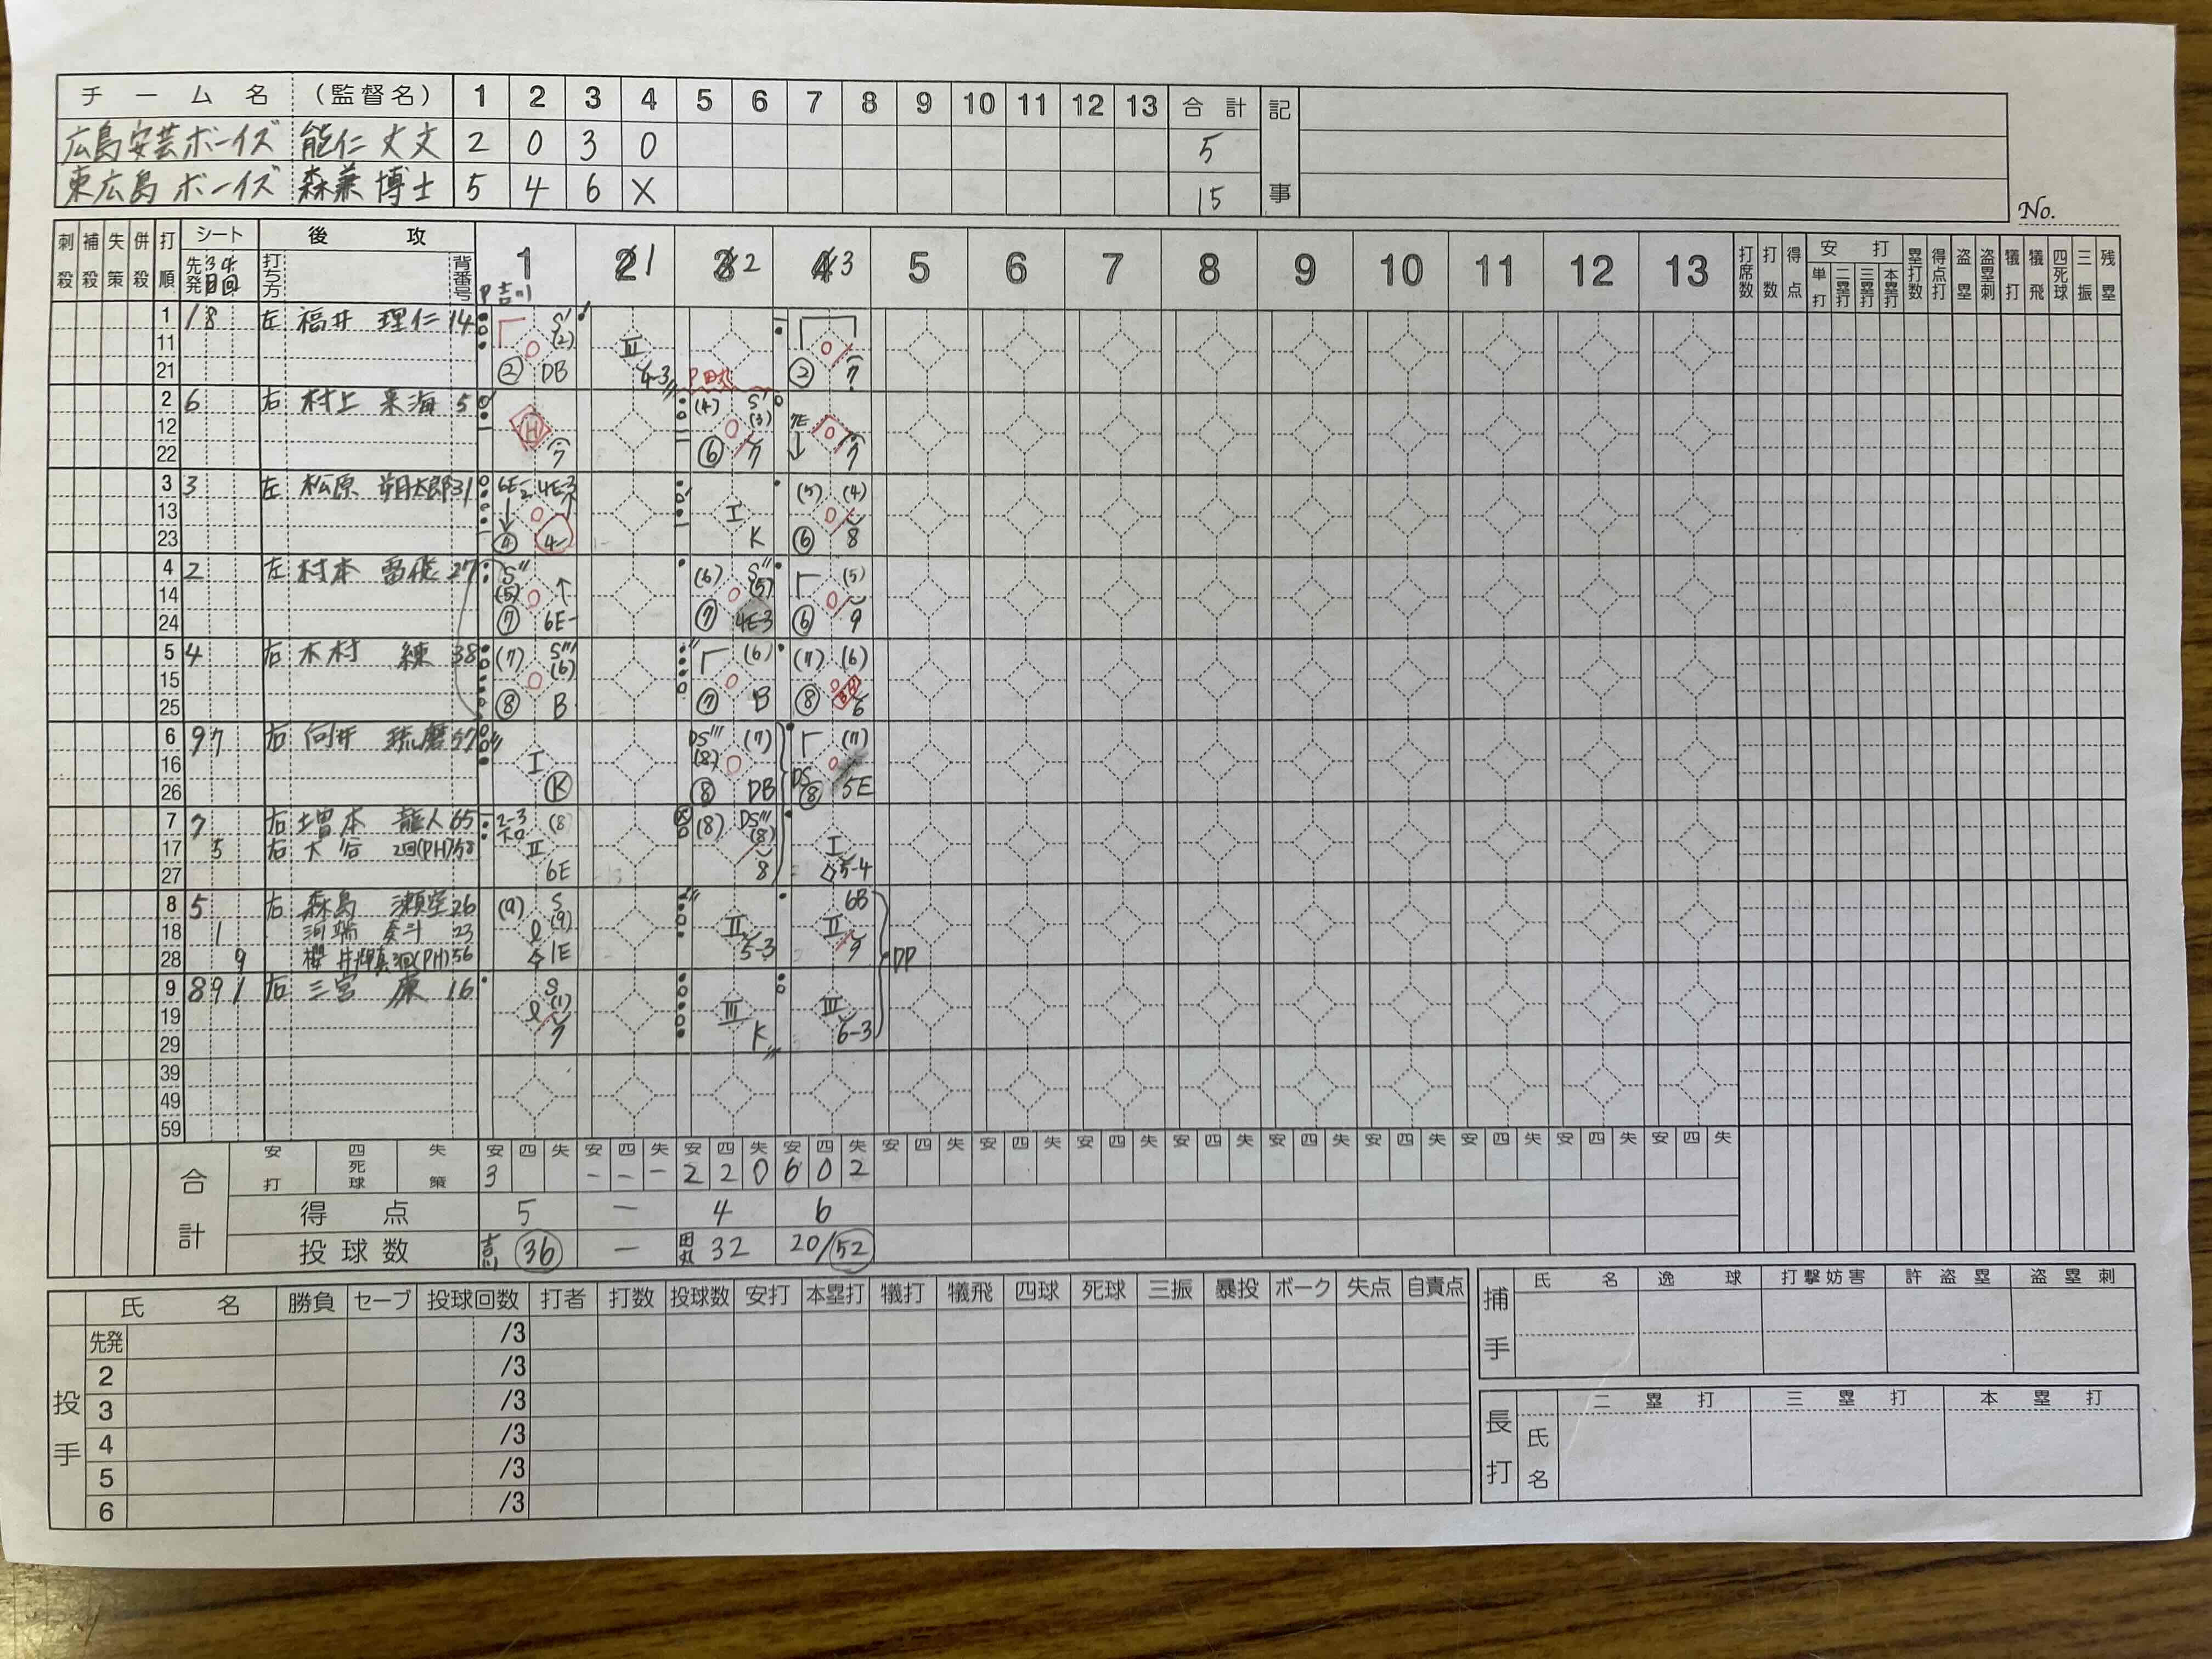 チーム名 (監督名) 1 2 3 4 5 6 7 8 9 10 11 12 13 合計 記事
広島安芸ボーイズ 能仁丈文 2 0 3 0 5
東広島ボーイズ 森兼博士 5 4 6 X 15
No.
刺殺 補殺 失策 併殺 打順 シート 先発 3回 4回 打ち方 後攻 背番号 1 2 1 3 2 4 3 5 6 7 8 9 10 11 12 13 打席数 打数 得点 安打 単打 二塁打 三塁打 本塁打 塁打数 得点打 盗塁 盗塁刺 犠打 犠飛 四死球 三振 残塁
P 吉川
1 1 8 左 福井 理仁 14 S' (2) ② DB II 4-3 ② 7
11
21
P 田丸
2 6 右 村上 来海 5 H 7 (4) S' (3) ⑥ 7 7E 7
12
22
3 3 左 松原 朔太郎 31 6E-2 4E-3 ④ 4- I K (5) (4) ⑥ 8
13
23
4 2 左 村本 27 S'' (5) ⑦ 6E- (6) S'' (5) ⑦ 4E-3 (5) ⑥ 9
14
24
5 4 右 木村 練 38 (7) S''' (6) ⑧ B (6) ⑦ B (7) (6) ⑧ 6
15
25
6 9 7 右 向井 琉磨 57 I K DS''' (7) (8) ⑧ DB (7) DS ⑧ 5E
16
26
7 7 右 増本 龍人 65 2-3 T.O (8) II 6E (8) DS''' (8) 8 I 5-4
17 5 右 大谷 2回(PH) 58
27
8 5 右 森島 瀬空 26 (9) S (9) l 1E II 5-3 6B II 9 DP
18 1 河端 奏斗 23
28 9 櫻井 3回(PH) 56
9 8 9 1 右 三宮 康 16 S (1) l 7 III K III 6-3
19
29
39
49
59
合計 安打 四死球 失策 安 四 失 安 四 失 安 四 失 安 四 失 安 四 失 安 四 失 安 四 失 安 四 失 安 四 失 安 四 失 安 四 失 安 四 失 安 四 失
3 - - - 2 2 0 6 0 2
得点 5 - 4 6
投球数 吉川 36 - 田丸 32 20/52
投手 氏名 勝負 セーブ 投球回数 打者 打数 投球数 安打 本塁打 犠打 犠飛 四球 死球 三振 暴投 ボーク 失点 自責点
先発 /3
2 /3
3 /3
4 /3
5 /3
6 /3
捕手 氏名 逸球 打撃妨害 許盗塁 盗塁刺
長打 氏名 二塁打 三塁打 本塁打